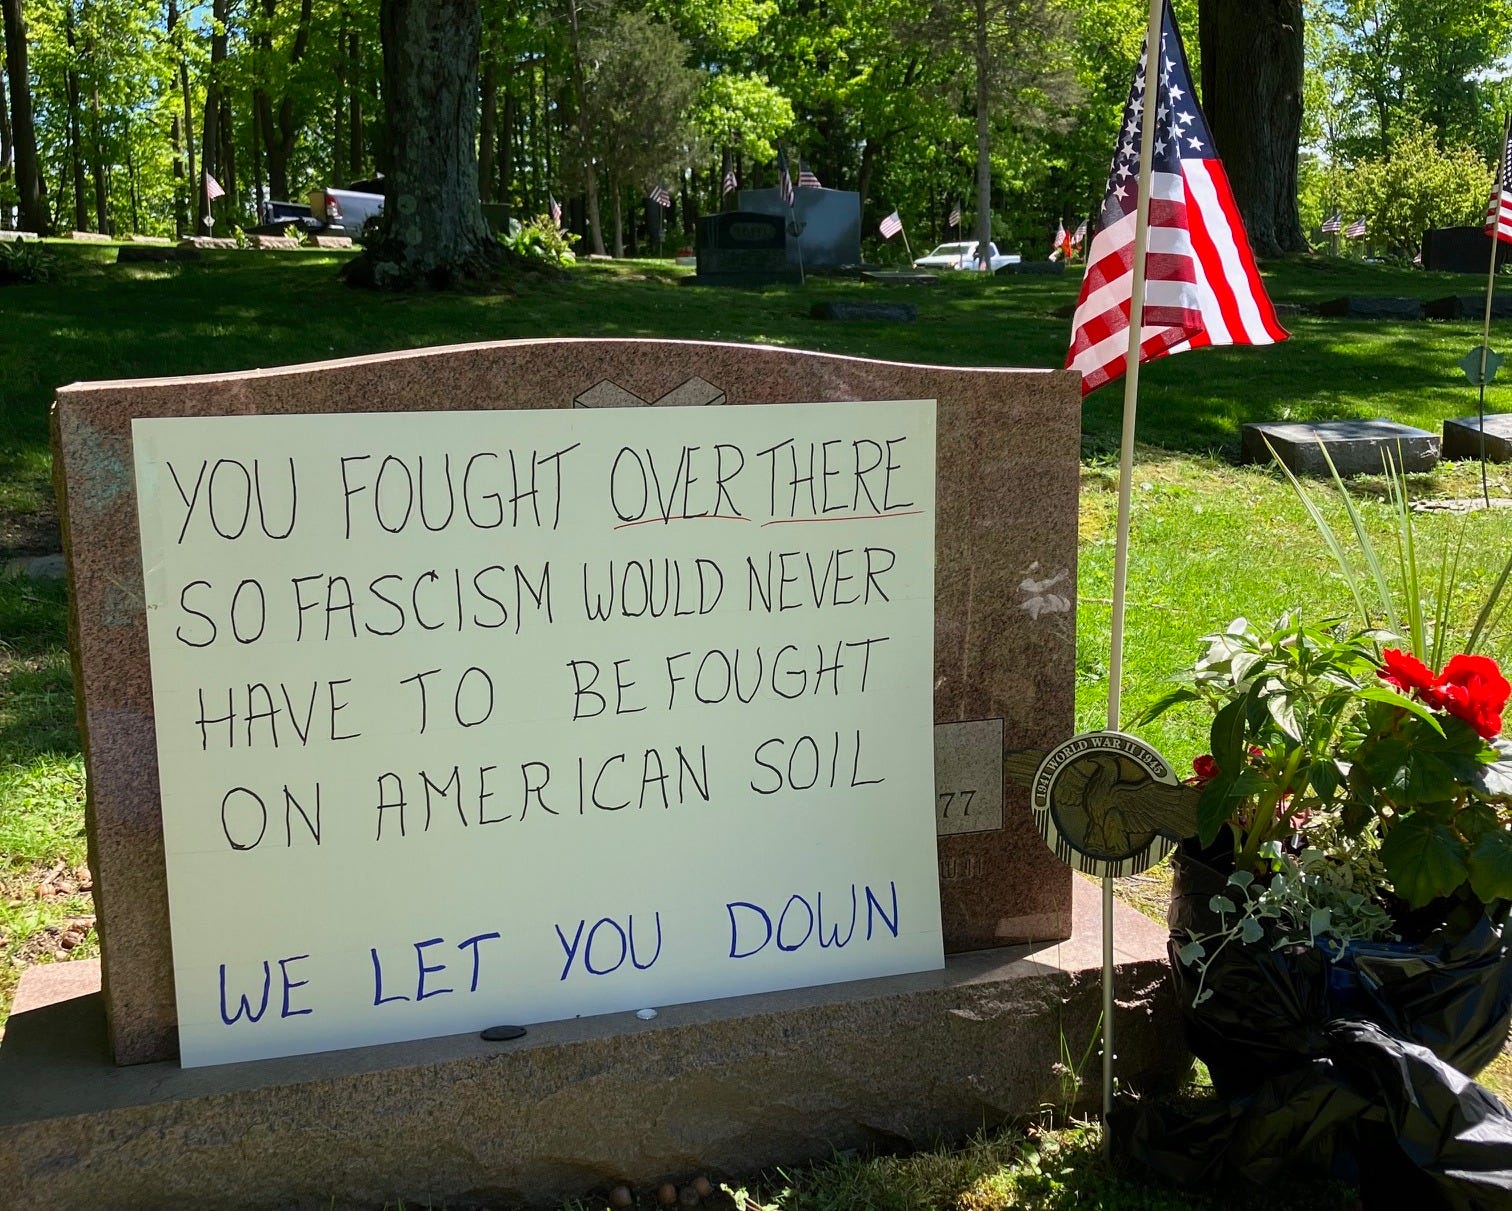 YOU FOUGHT OVER THERE
SO FASCISM WOULD NEVER
HAVE TO BE FOUGHT
ON AMERICAN SOIL
WE LET YOU DOWN
77
1941 WORLD WAR II 1945